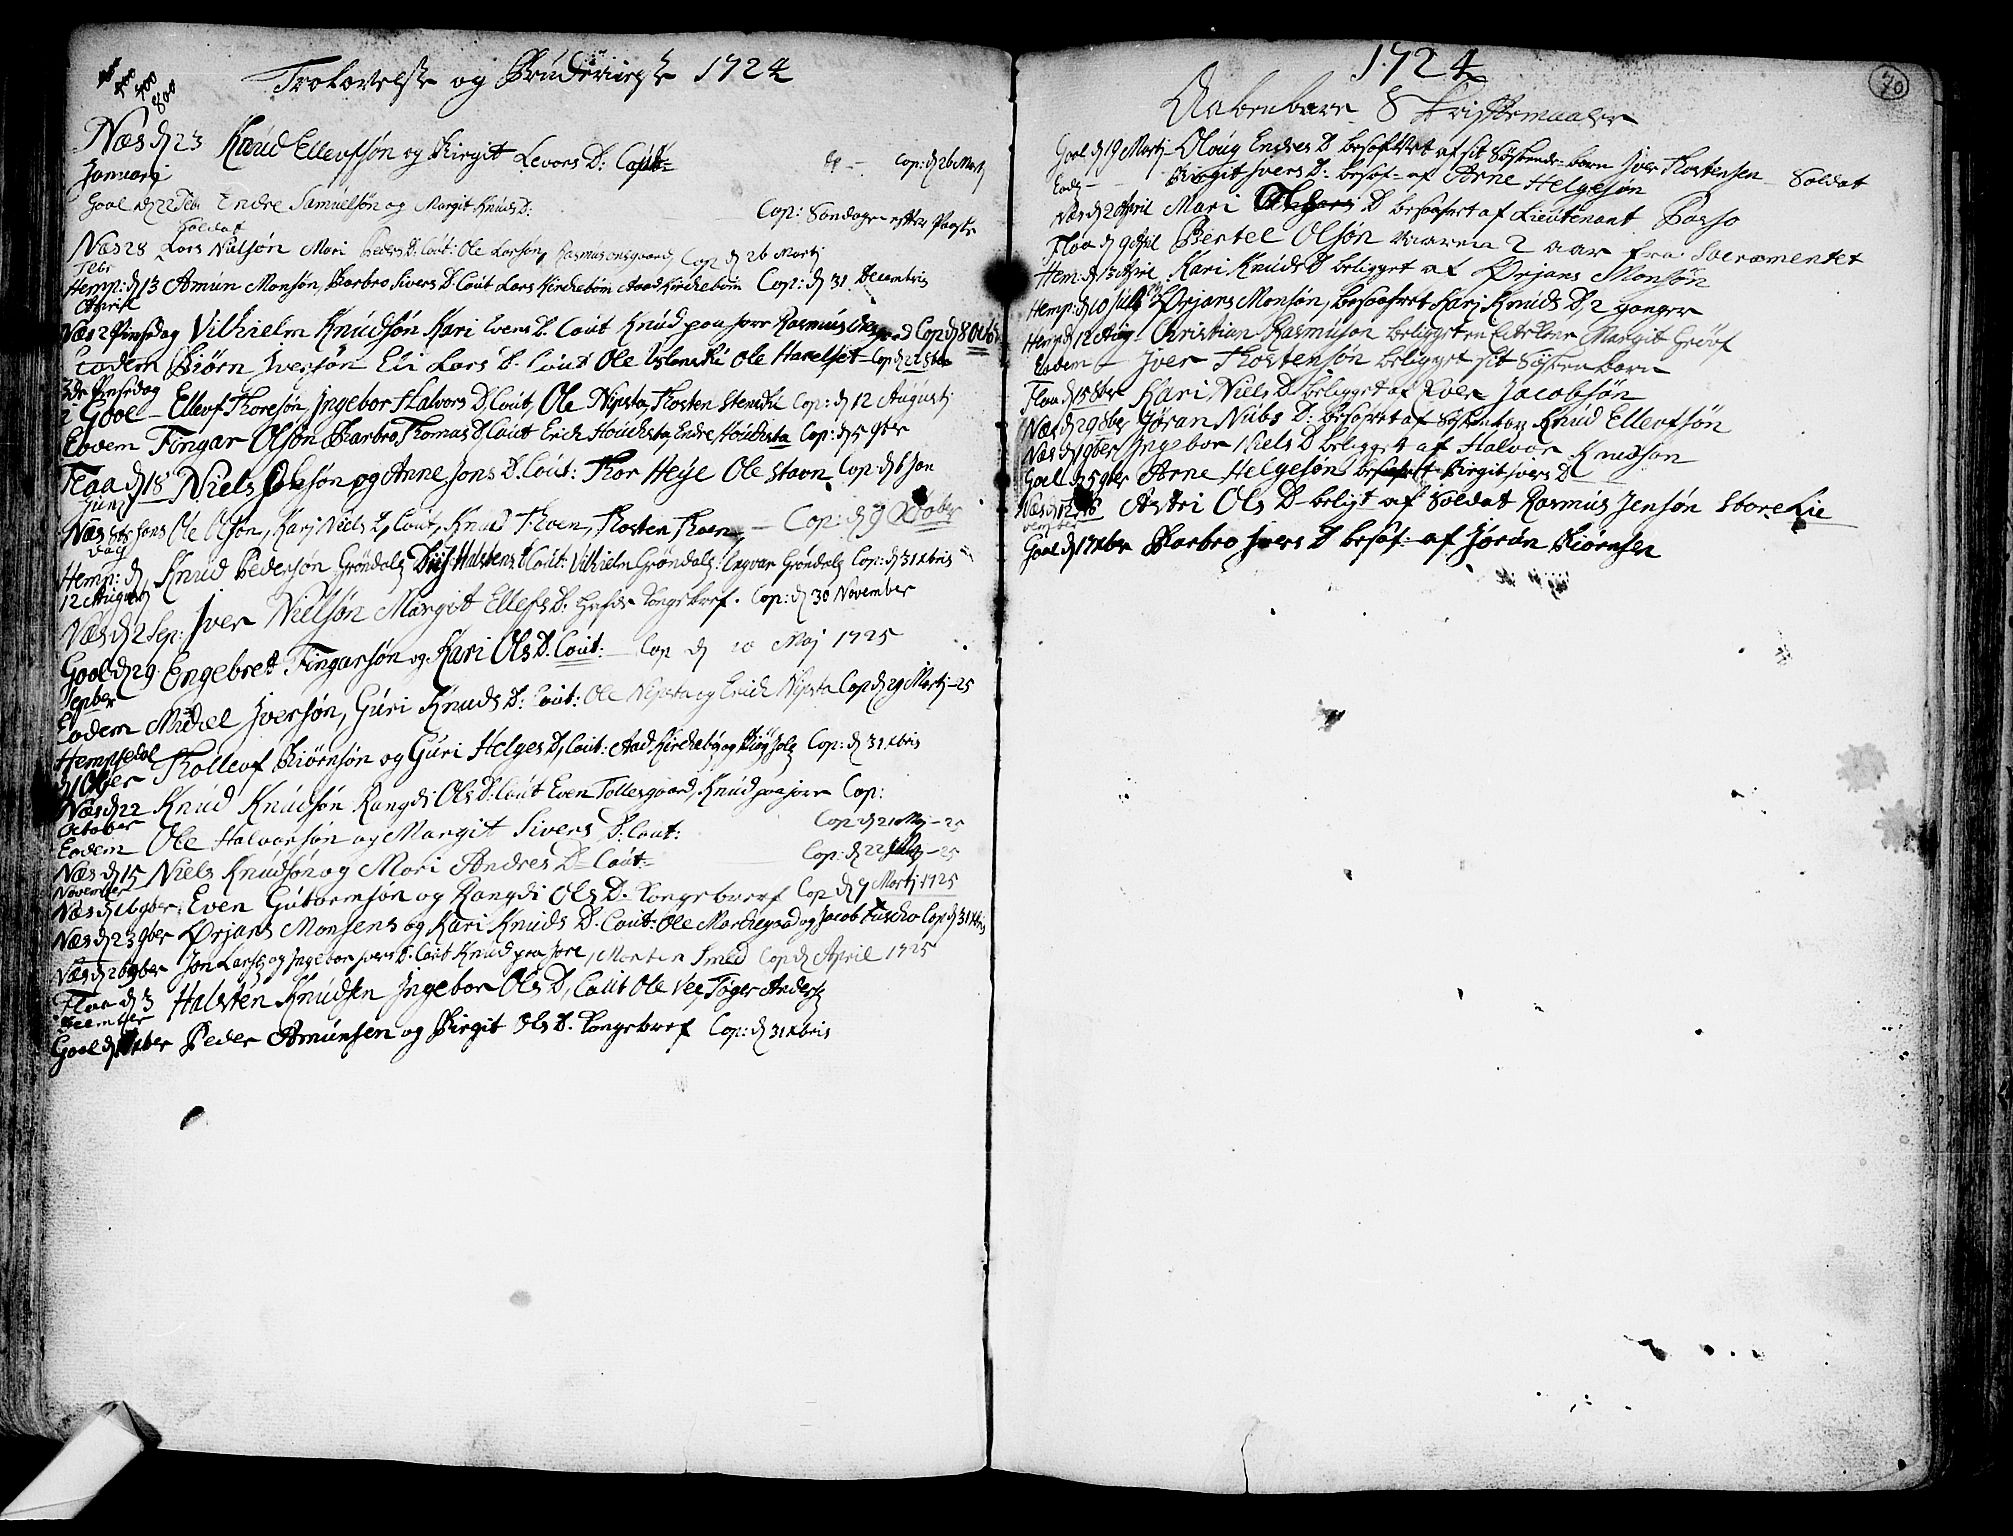 Trolovelse og Brudevielse 1724
800
Næs d 23 Knud Ellevssøn og Birgit Levors D: Caut: Cop: d 26 Martj
Januarij
Gool d 22 Febr Endre Samuelsøn og Margit Knuds D: Cop: Søndagen efter Paaske
Soldat
Næs 28 Lars Nielsøn Mari Peders D. Caut: Ole Larsøn, Rasmus Cop d 26 Martj
Febr
Hemp: d 13 Amun Monsøn, Barbro Sivers D. Caut Lars Kirchebøin Aad Kirchebøin Cop: d 31 Decembris
Aprill
Næs 2 Pinsedag Vilhielm Knudsøn Kari Evens D. Caut Knud paa jorr Rasmus Cop d 8 Octobr
Eodem Biørn Iversøn Eli Lars D. Caut Ole Ole Havelset Cop: d
3de Pinsedag
Gool - Ellevf Thoresøn, Ingebor Halvors D, Caut, Ole Nipsta, Thosten Cop: d 12 Augustj
Eodem Fingar Olsøn Barbro Thomas D, Caut Erich Houchsta, Endre Houchsta Cop: d 5 9ber
Flaa d 18 Niels Olsøn og Anne Jons D. Caut: Thor Heye Ole Stavn Cop d 6 Jan
Junj
Næs Sts Hans Ole Olsøn, Karj Niels D, Caut, Knud Thoen, Thosten Thoen - Cop: d 9 October
dag
Hemp: d Knud Pedersøn Grøndalen Halstens D Caut: Vilhielm Grøndalen: Ingvar Grøndalen Cop: d 31 Xbris
12 Augustj
Næs d 2 Sep: Iver Nielsøn Margit Ellefs D. Kongebref. Cop: d 30 November
Gool d 29 Engebret Fingarsøn og Kari Ols D. Caut: Cop d 10 Maj 1725
Sepber
Eodem Michel Iversøn, Guri Knuds D: Caut: Ole Nipsta og Erich Nipsta Cop d 29 Martj - 25
Hempsedal Tholleof Biørnsøn og Guri Helges D, Caut: Aad Kirchebøy og Cop: d 31 Xbris
d 1 Otber
Næs d 22 Knud Knudsøn Rangdi Ols D. Caut Even Tollefsgaard, Knud paa jorr Cop:
October
Eodem Ole Halvorsøn og Margit Sivers D. Caut: Cop d 21 Maj - 25
Næs d 15 Niels Knudsøn og Mari Andres D= Caut= Cop: d 22 - 25
November
Næs d 16 9ber: Even Gutormsøn og Rangdi Ols D. Kongebref Cop d 7 Martj 1725
Næs d 23 9ber Ørjans Monsens og Kari Knuds D. Caut: Ole Marchegaard og Jacob Cop d 31 Xbris
Næs d 26 9ber Jon Larsøn og Ingebor Ivers D. Caut Knud paa Jore, Morten Smed Cop d April 1725
Flaa d 3 Halsten Knudsen Ingebor Ols D, Caut Ole Vee, Tøger Anders
December
Gool d Xber Peder Amunsen og Birgit Ols D. Kongebref Cop: d 31 Xbris
1724
70
Aabenbare Skriftemaaler
Gool d 19 Martj - Oloug Endres D besofvet af sit Søskende-barn Iver Thostensen Soldat
Eode - - Birgit Ivers D: besof= af Arne Helgesøn
Næs d 2 April Mari D besofvet af Lieutenant Basso
Flaa d 9 April Bertel Olsøn vaaren 2 aar fra Sacramentet
Hem: d 13 April Kari Knuds D beligget af Ørjans Monsøn
Hemp: d 10 Julj Ørjans Monsøn, besofvet Karj Knuds D, 2 ganger
Hemp d 12 Aug - Christian Rasmusen beligget en Margit
Eodem - Iver Thostensøn beligget sit Søskenbarn
Flaa d 15 8ber Kari Niels D beligget af Roer Jacobsøn
Næs d 29 8ber Gøran Nubs D: besofvet af Knud Ellevssøn
Næs d 1 9ber Ingebor Niels D beligget af Halvor Knudsøn
Gool d 5 9ber Arne Helgesøn besofvet Birgit Ivers D
Næs d 12 Astri Ols D beligt af Soldat Rasmus Jensøn Store Lie
Gool d 17 Xber Barbro Ivers D besof: af Joran Biørnsen